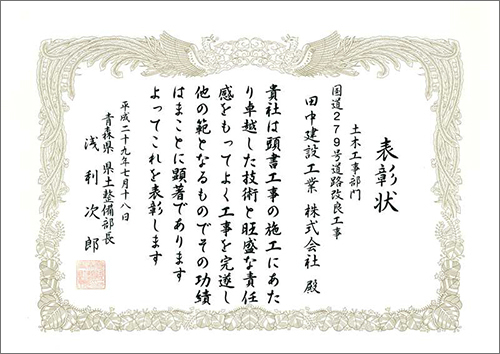 表彰状
土木工事部門
国道279号道路改良工事
田中建設工業 株式会社 殿
貴社は頭書工事の施工にあた
り卓越した技術と旺盛な責任
感をもってよく工事を完遂し
他の範となるものでその功績
はまことに顕著であります
よってこれを表彰します
平成二十九年七月十八日
青森県 県土整備部長
浅利次郎